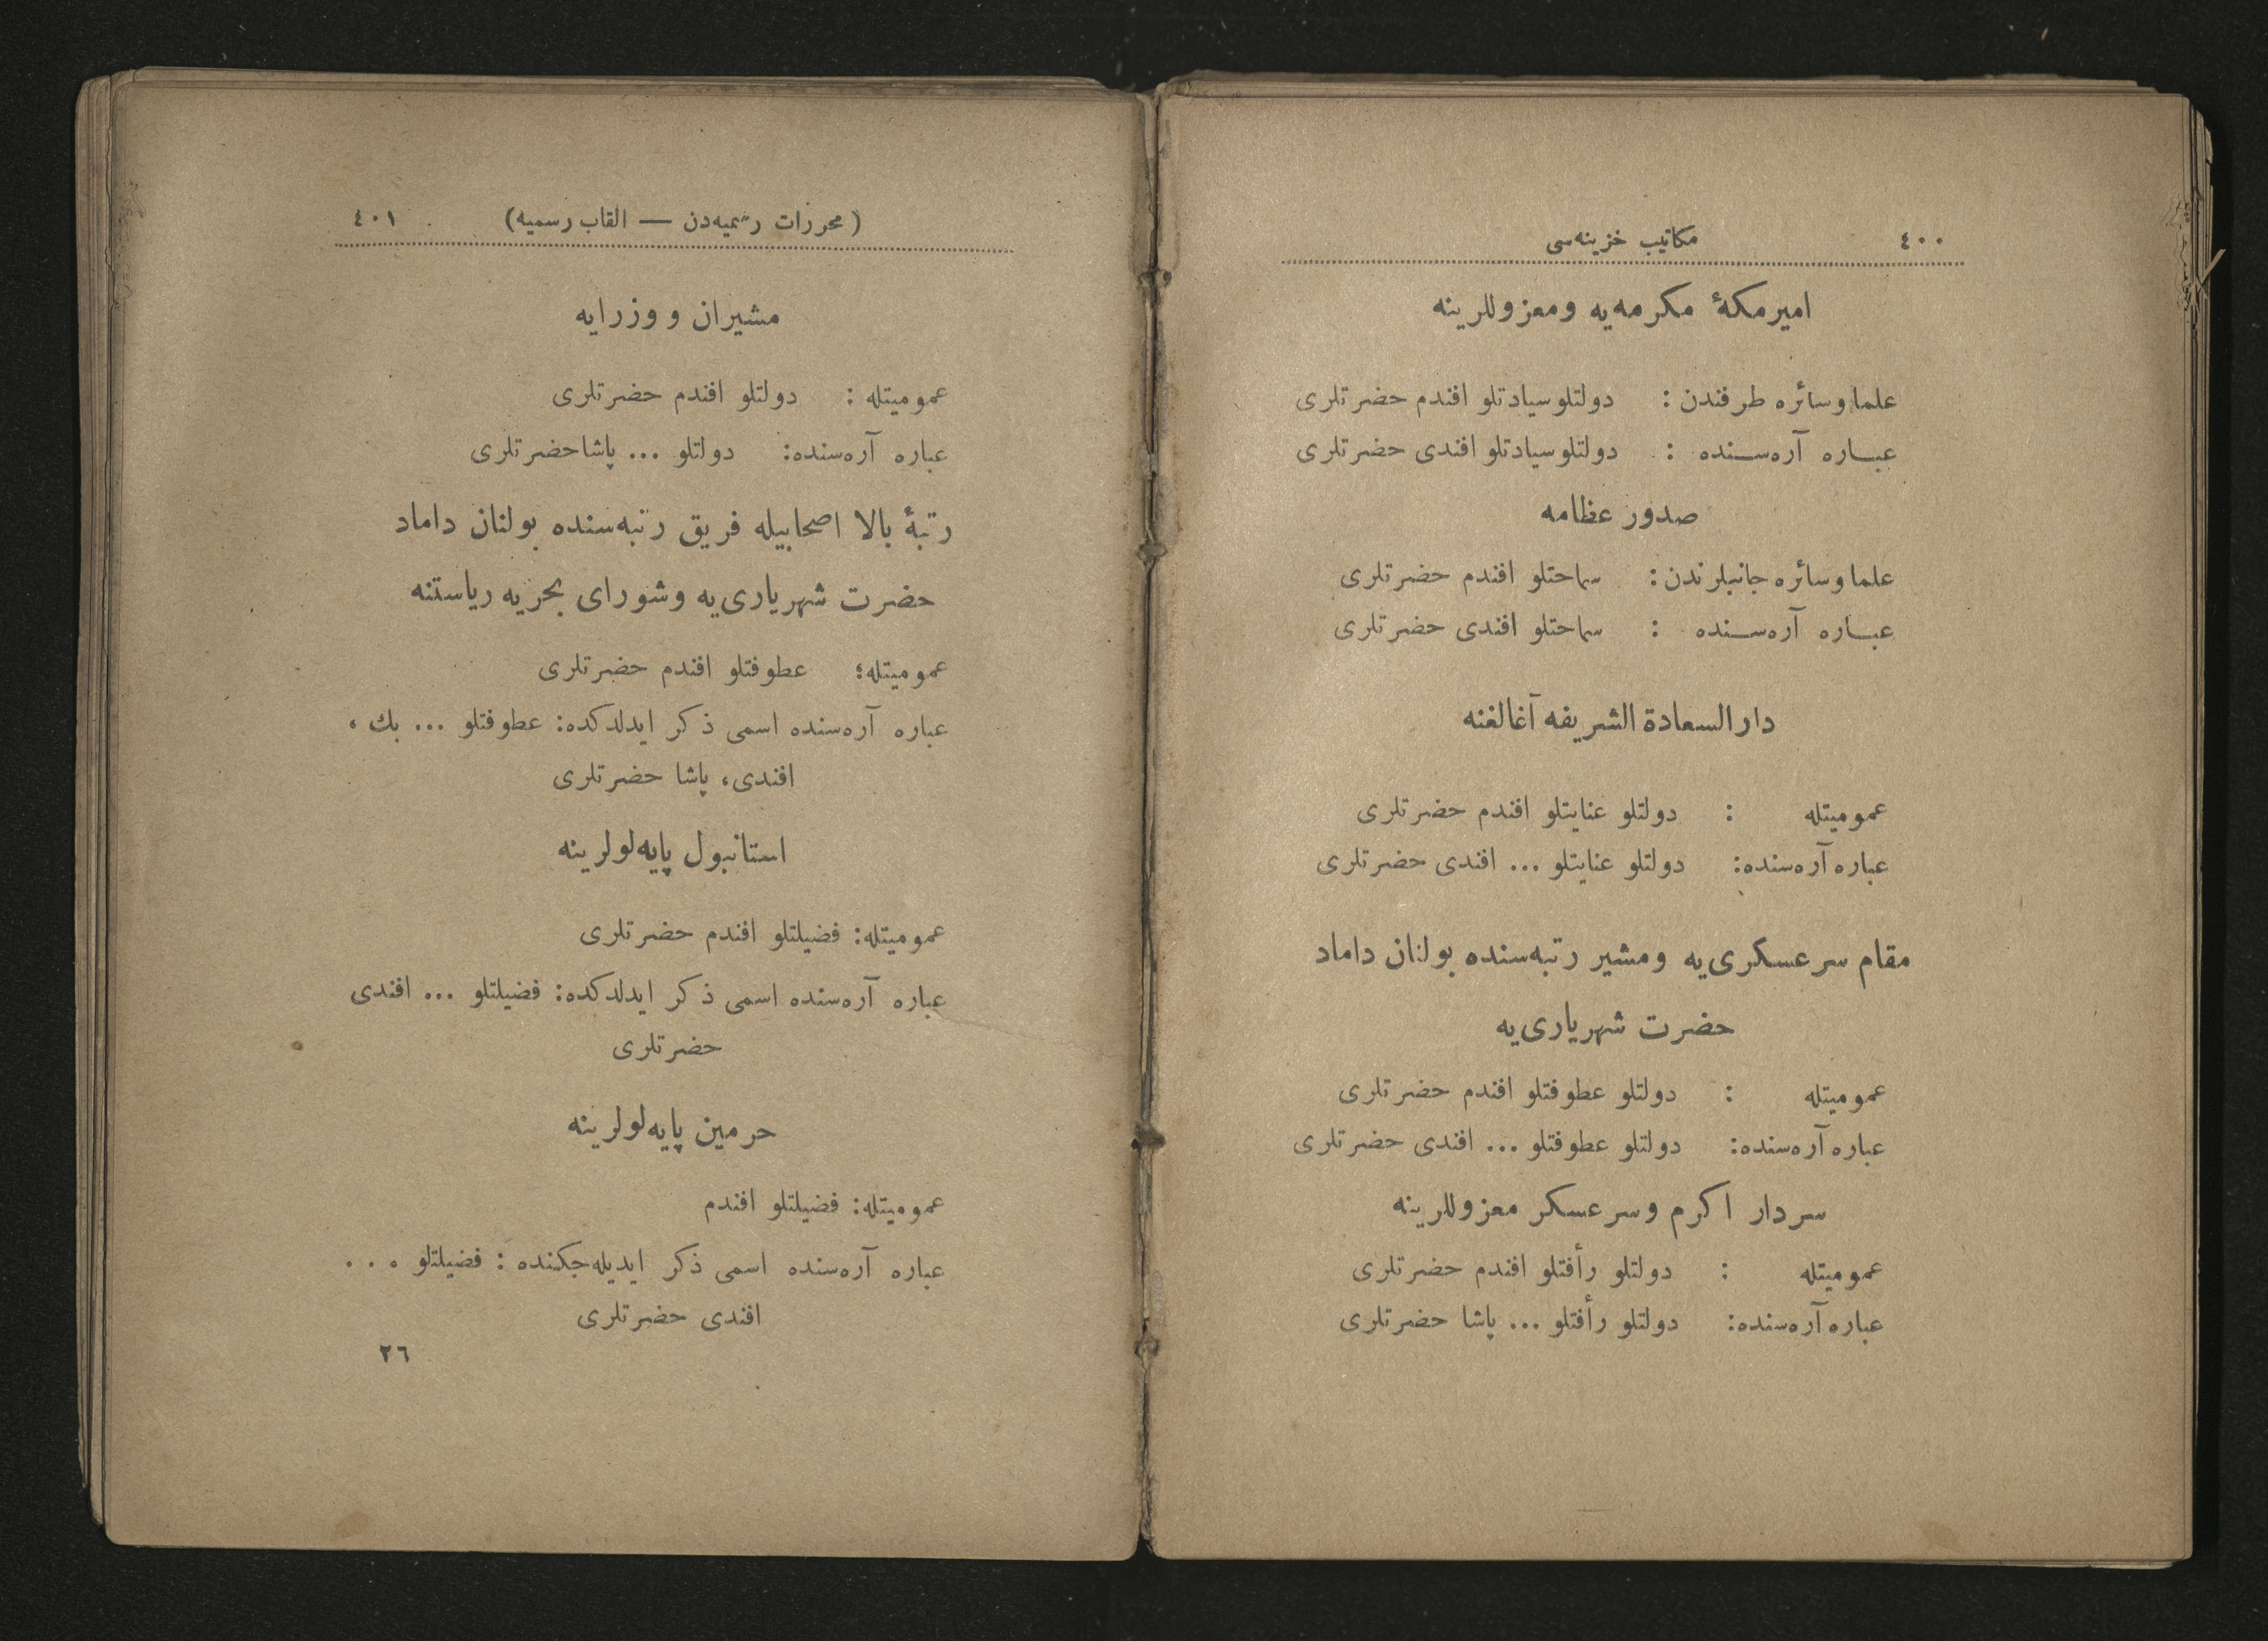 ٤٠٠ مكاتيب خزينه‌سى
امير مكهٔ مكرمه‌يه ومعزوللرينه
علما وسائره طرفندن : دولتلو سيادتلو افندم حضرتلرى
عباره آره‌سنده : دولتلو سيادتلو افندى حضرتلرى
صدور عظامه
علما وسائره جانبلرندن : سماحتلو افندم حضرتلرى
عباره آره‌سنده : سماحتلو افندى حضرتلرى
دار السعادة الشريفه آغالغنه
عموميتله : دولتلو عنايتلو افندم حضرتلرى
عباره آره‌سنده : دولتلو عنايتلو ... افندى حضرتلرى
مقام سرعسكرى‌يه ومشير رتبه‌سنده بولنان داماد
حضرت شهريارى‌يه
عموميتله : دولتلو عطوفتلو افندم حضرتلرى
عباره آره‌سنده : دولتلو عطوفتلو ... افندى حضرتلرى
سردار اكرم وسرعسكر معزوللرينه
عموميتله : دولتلو رأفتلو افندم حضرتلرى
عباره آره‌سنده : دولتلو رأفتلو ... پاشا حضرتلرى
(محررات رسميه‌دن — القاب رسميه) ٤٠١
مشيران و وزرايه
عموميتله : دولتلو افندم حضرتلرى
عباره آره‌سنده : دولتلو ... پاشا حضرتلرى
رتبهٔ بالا اصحابيله فريق رتبه‌سنده بولنان داماد
حضرت شهريارى‌يه وشوراى بحريه رياستنه
عموميتله : عطوفتلو افندم حضرتلرى
عباره آره‌سنده اسمى ذكر ايدلدكده : عطوفتلو ... بك ،
افندى ، پاشا حضرتلرى
استانبول پايه‌لولرينه
عموميتله : فضيلتلو افندم حضرتلرى
عباره آره‌سنده اسمى ذكر ايدلدكده : فضيلتلو ... افندى
حضرتلرى
حرمين پايه‌لولرينه
عموميتله : فضيلتلو افندم
عباره آره‌سنده اسمى ذكر ايديله‌جكنده : فضيلتلو ...
افندى حضرتلرى
٢٦